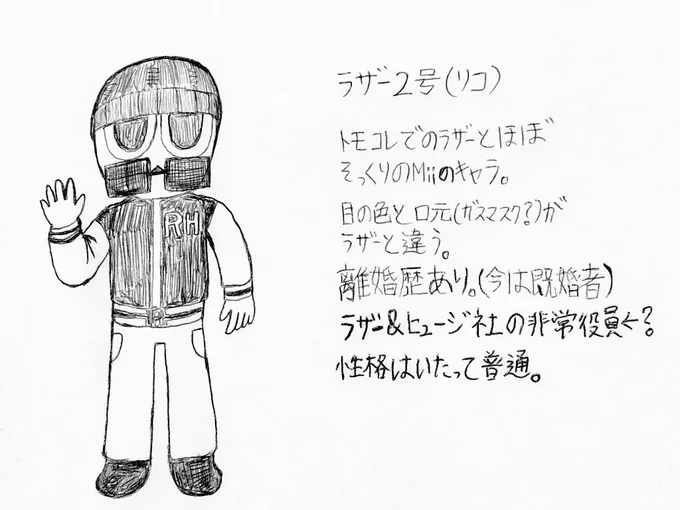 ラザー2号(リコ)
トモコレでのラザーとほぼ
そっくりのMiiのキャラ。
目の色と口元(ガスマスク?)が
ラザーと違う。
離婚歴あり。(今は既婚者)
ラザー&ヒュージ社の非常役員←?
性格はいたって普通。
RH
R